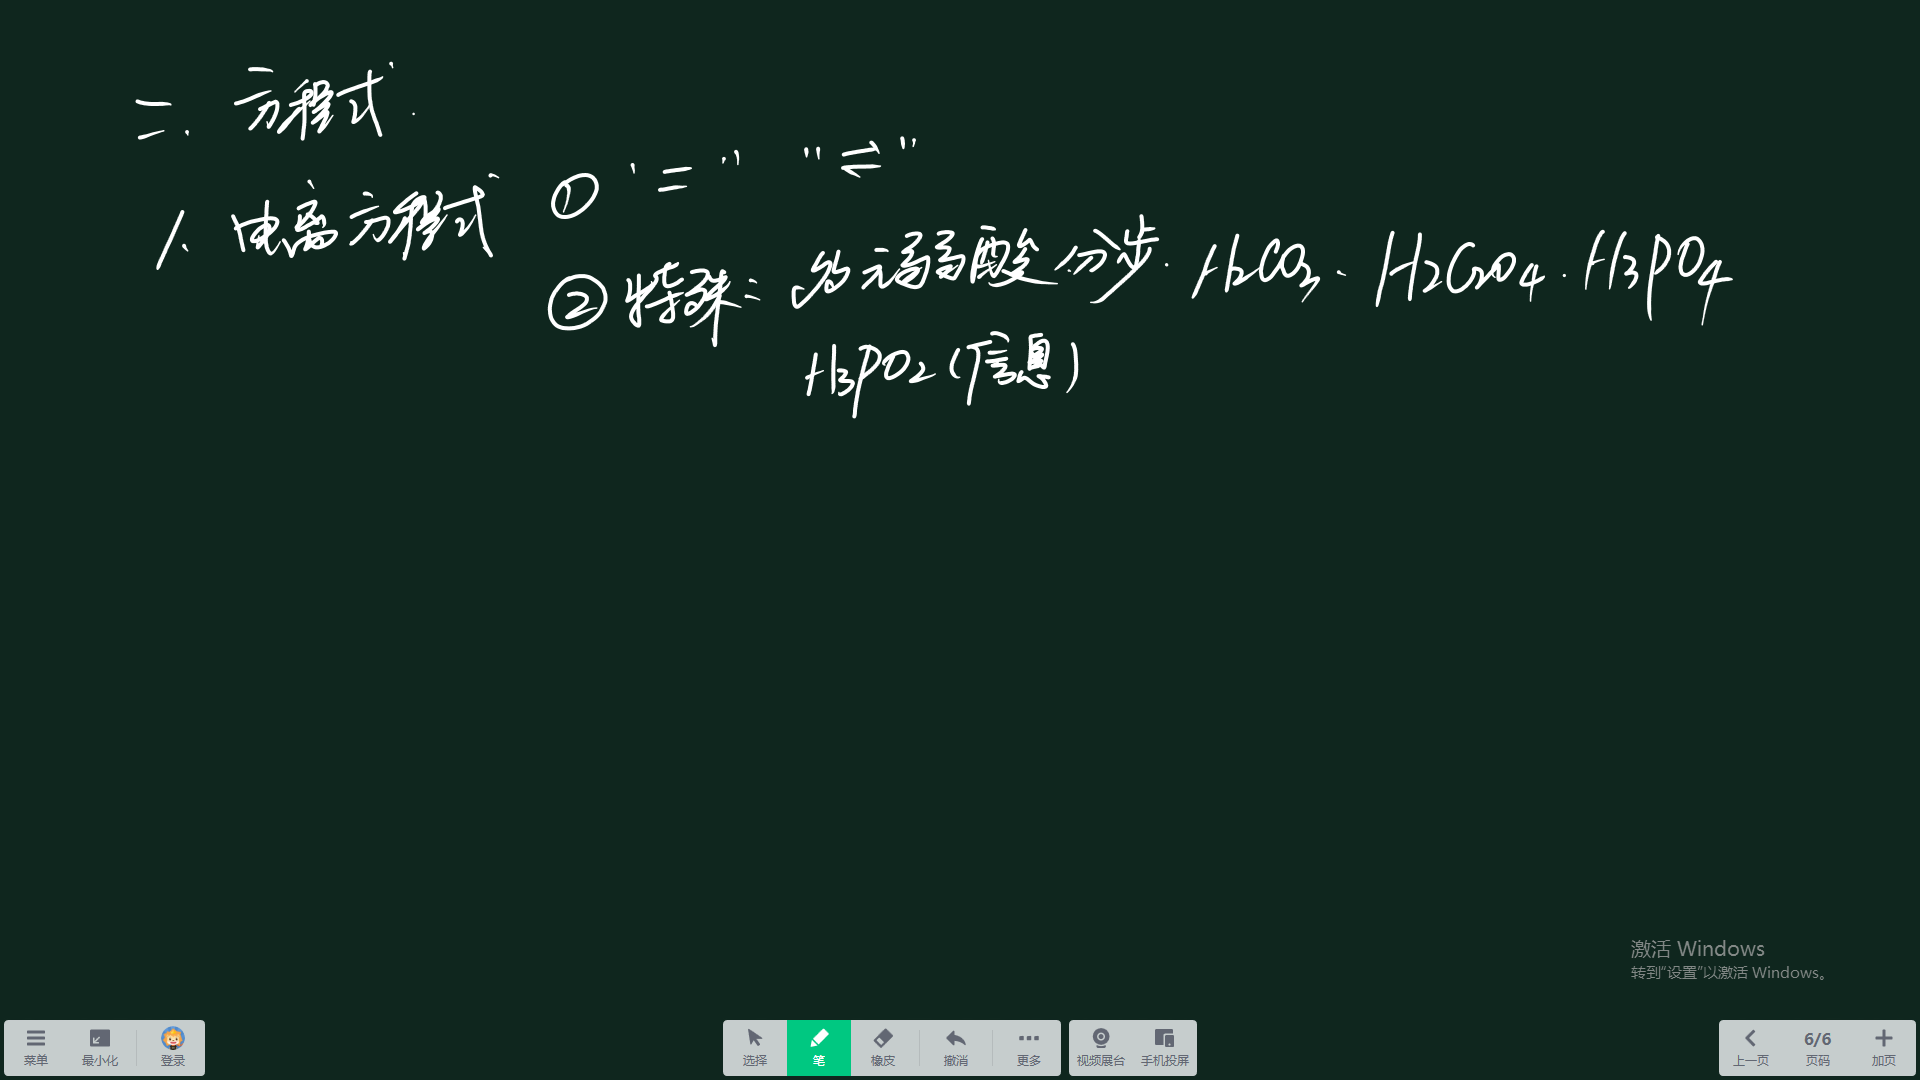 二. 方程式.
1. 电离方程式 ① "=" "⇌"
② 特殊: 多元弱酸分步. H2CO3、H2C2O4. H3PO4
H3PO2 (信息)
激活 Windows
转到“设置”以激活 Windows。
菜单 最小化 登录 选择 笔 橡皮 撤消 更多 视频展台 手机投屏 上一页 6/6 页码 加页